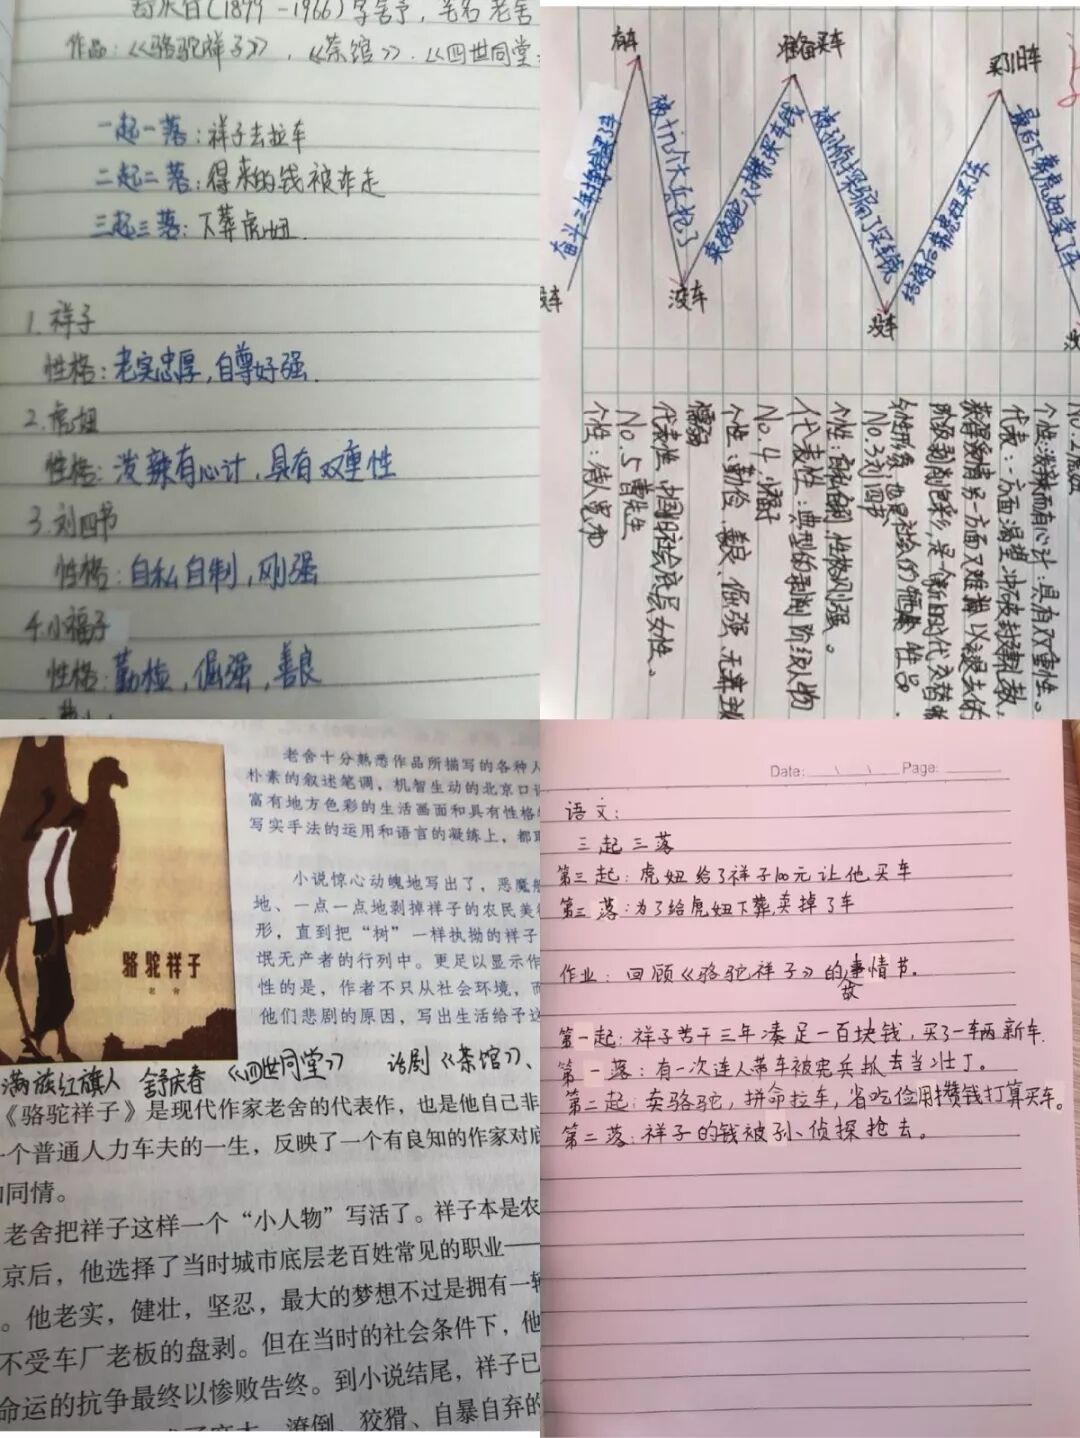 舒庆春(1899-1966)字舍予,笔名老舍
作品:《骆驼祥子》,《茶馆》.《四世同堂
一起一落:祥子去拉车
二起二落:得来的钱被诈走
三起三落:下葬虎妞.
1.祥子
性格:老实忠厚,自尊好强.
2.虎妞
性格:泼辣有心计,具有双重性
3.刘四爷
性格:自私自制,刚强
4.小福子
性格:勤俭,倔强,善良
有车
准备买车
买了旧车
奋斗三年
被十几个大兵抢了
被孙侦探骗了买车钱
结婚后靠虎妞买车
最后下葬虎妞卖了车
没车
没车
没车
No.2虎妞
个性:泼辣而有心计:具有双重性。
代表:一方面渴望冲破封建礼教,
获得爱情另一方面又难
阶级剥削色彩,是个新旧时代交替
也是社会的牺牲品.
No.3刘四爷
性格刚强。
代表性:典型的剥削阶级人物
No.4小福子
个性:勤俭,善良,倔强,无奔
懦弱
代表性:中国旧社会底层女性。
No.5曹先生
个性:待人宽和
老舍十分熟悉作品所描写的各种人
朴素的叙述笔调,机智生动的北京口语
富有地方色彩的生活画面和具有性格
写实手法的运用和语言的凝练上,都取
小说惊心动魄地写出了,恶魔般
地、一点一点地剥掉祥子的农民美德
形,直到把“树”一样执拗的祥子
氓无产者的行列中。更足以显示作
性的是,作者不只从社会环境,而
他们悲剧的原因,写出生活给予这
骆驼祥子
老舍
满族红旗人 舒庆春 《四世同堂》 话剧《茶馆》、
《骆驼祥子》是现代作家老舍的代表作,也是他自己非
个普通人力车夫的一生,反映了一个有良知的作家对底
同情。
老舍把祥子这样一个“小人物”写活了。祥子本是农
京后,他选择了当时城市底层老百姓常见的职业——
。他老实,健壮,坚忍,最大的梦想不过是拥有一辆
不受车厂老板的盘剥。但在当时的社会条件下,他
命运的抗争最终以惨败告终。到小说结尾,祥子已
潦倒、狡猾、自暴自弃的
Date: \ \ Page:
语文:
三起三落
第三起:虎妞给了祥子100元让他买车
第三落:为了给虎妞下葬,卖掉了车
作业:回顾《骆驼祥子》的事情节。
故
第一起:祥子苦干三年凑足一百块钱,买了一辆新车.
第一落:有一次连人带车被宪兵抓去当壮丁。
第二起:卖骆驼,拼命拉车,省吃俭用攒钱打算买车。
第二落:祥子的钱被孙侦探抢去。